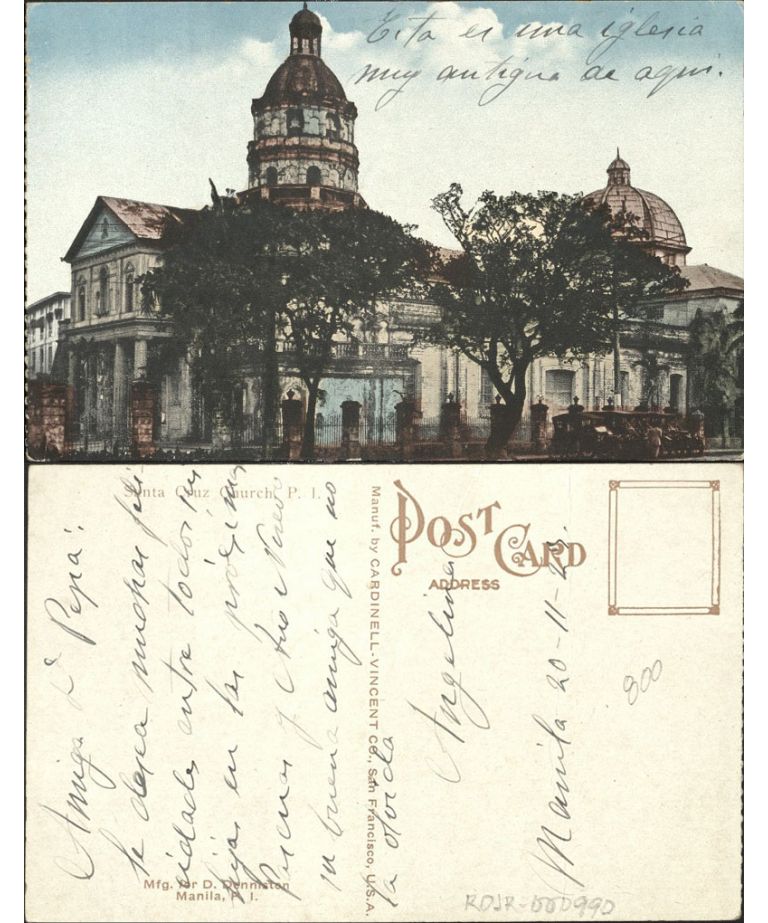 Esta es una iglesia
muy antigua de aqui.
Santa Cruz Church, P. I.
Amiga Dª Pepa:
le desea muchas feli
cidades entre todos sus
hijas en las próximas
Pascuas y Año Nuevo
su buena amiga que no
la olvida
Angelina
Manila 20-11-23.
Manuf. by CARDINELL-VINCENT CO., San Francisco, U.S.A.
POST CARD
ADDRESS
800
Mfg. for D. Denniston
Manila, P. I.
RDJR-000990